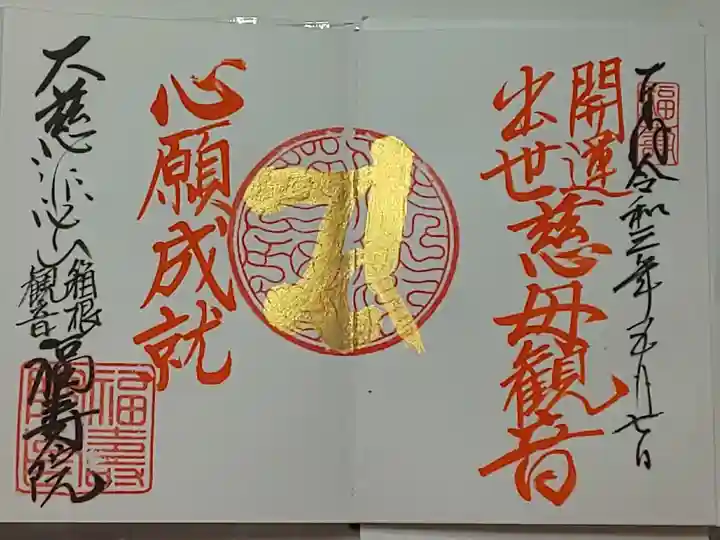 奉拝 令和三年五月七日
開運
出世慈母観音
心願成就
大慈悲山
箱根
観音
福寿院